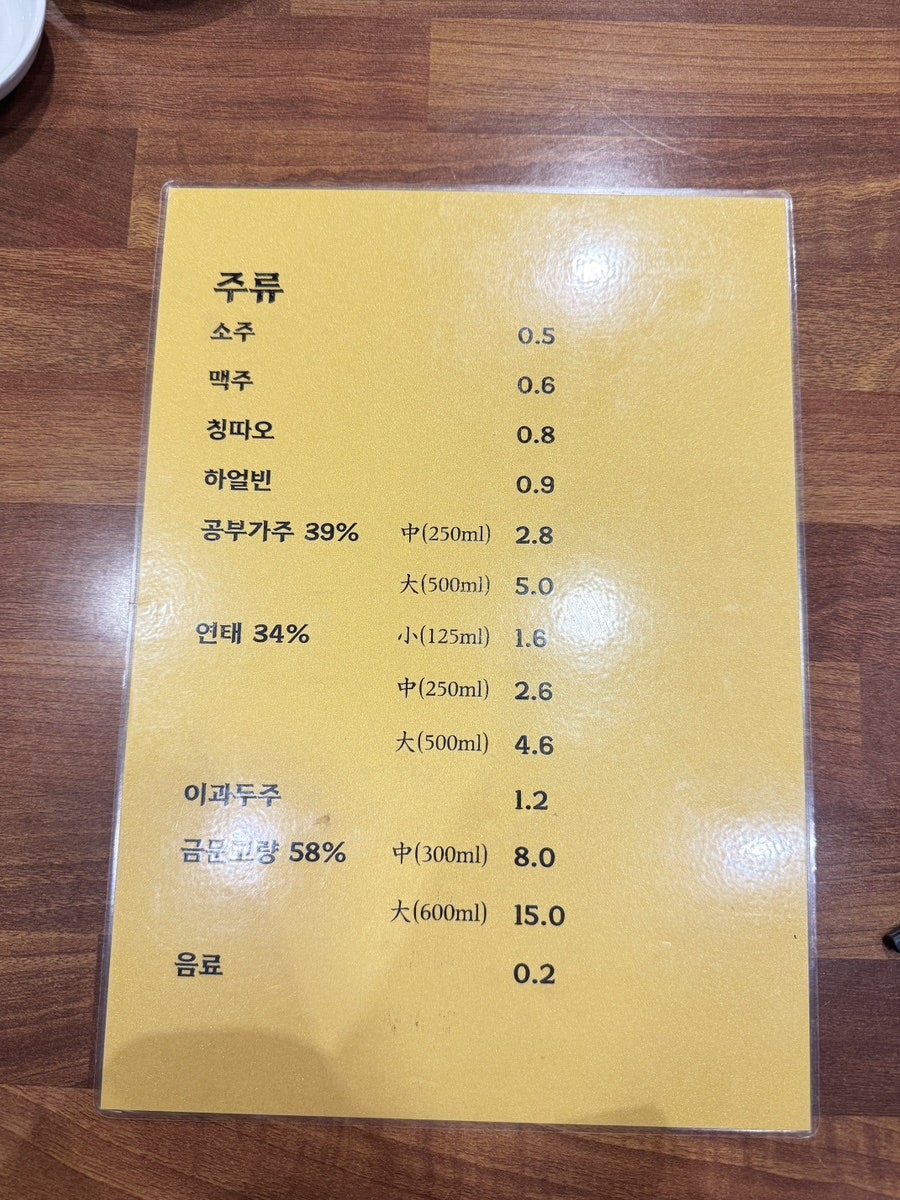 주류
소주 0.5
맥주 0.6
칭따오 0.8
하얼빈 0.9
공부가주 39% 中(250ml) 2.8
大(500ml) 5.0
연태 34% 小(125ml) 1.6
中(250ml) 2.6
大(500ml) 4.6
이과두주 1.2
금문고량 58% 中(300ml) 8.0
大(600ml) 15.0
음료 0.2